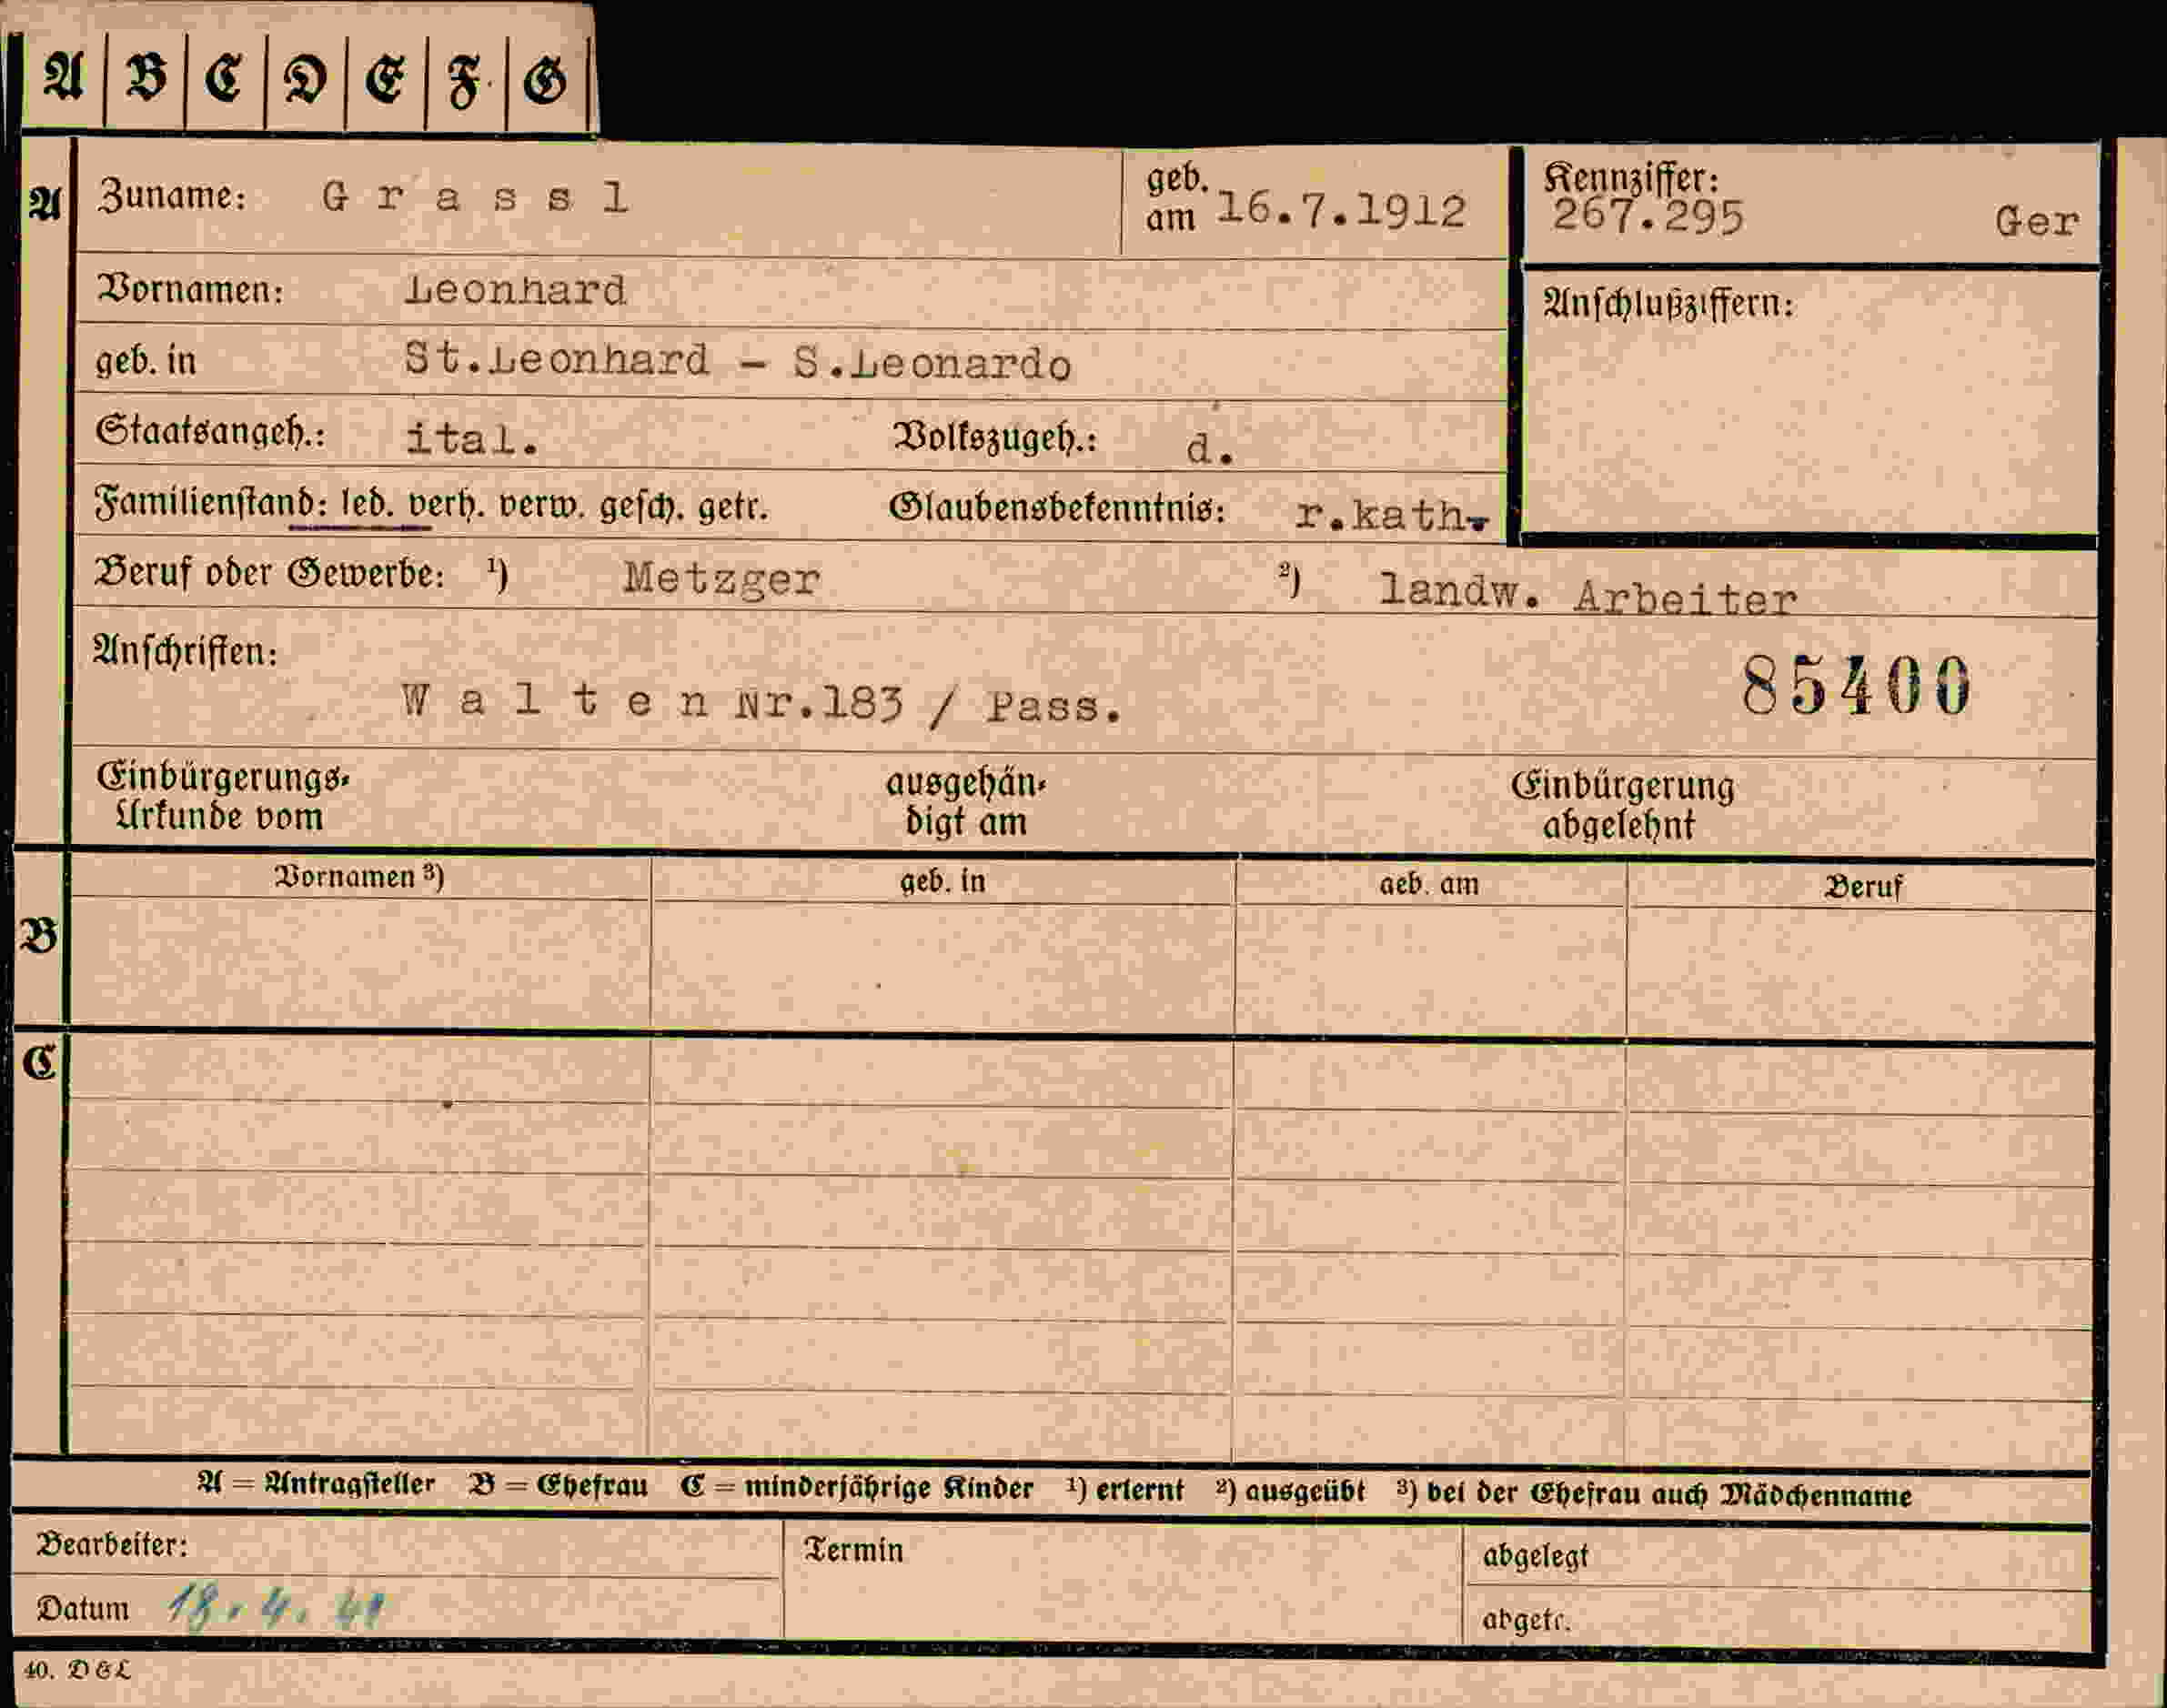 A B C D E F G
A Zuname: Grassl geb. am 16.7.1912 Kennziffer: 267.295 Ger
Vornamen: Leonhard Anschlußziffern:
geb. in St.Leonhard - S.Leonardo
Staatsangeh.: ital. Volkszugeh.: d.
Familienstand: led. verh. verw. gesch. getr. Glaubensbekenntnis: r.kath.
Beruf oder Gewerbe: ¹) Metzger ²) landw. Arbeiter
Anschriften:
Walten Nr.183 / Pass. 85400
Einbürgerungs-Urkunde vom ausgehändigt am Einbürgerung abgelehnt
B Vornamen ³) geb. in geb. am Beruf
C
A = Antragsteller B = Ehefrau C = minderjährige Kinder ¹) erlernt ²) ausgeübt ³) bei der Ehefrau auch Mädchenname
Bearbeiter: Termin abgelegt
Datum abgetr.
40. D & L